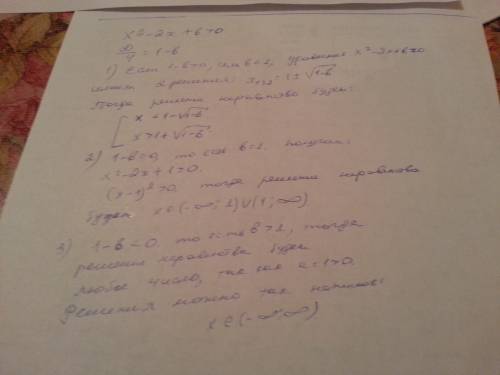 x² - 2x + b > 0
D/4 = 1 - b
1) Если 1-b>0, или b<1, уравнение x²-2x+b=0
имеет 2 решения: x₁,₂ = 1 ± √1-b
Тогда решения неравенства будут:
[ x < 1-√1-b
x > 1+√1-b
2) 1-b=0, то есть b=1. получаем:
x²-2x+1>0.
(x-1)²>0. тогда решения неравенства
будет x∈(-∞;1)∪(1;∞)
3) 1-b<0. то есть b>1, тогда
решения неравенства будет
любое число, так как a=1>0.
Решения можно так написать:
x∈(-∞;∞)